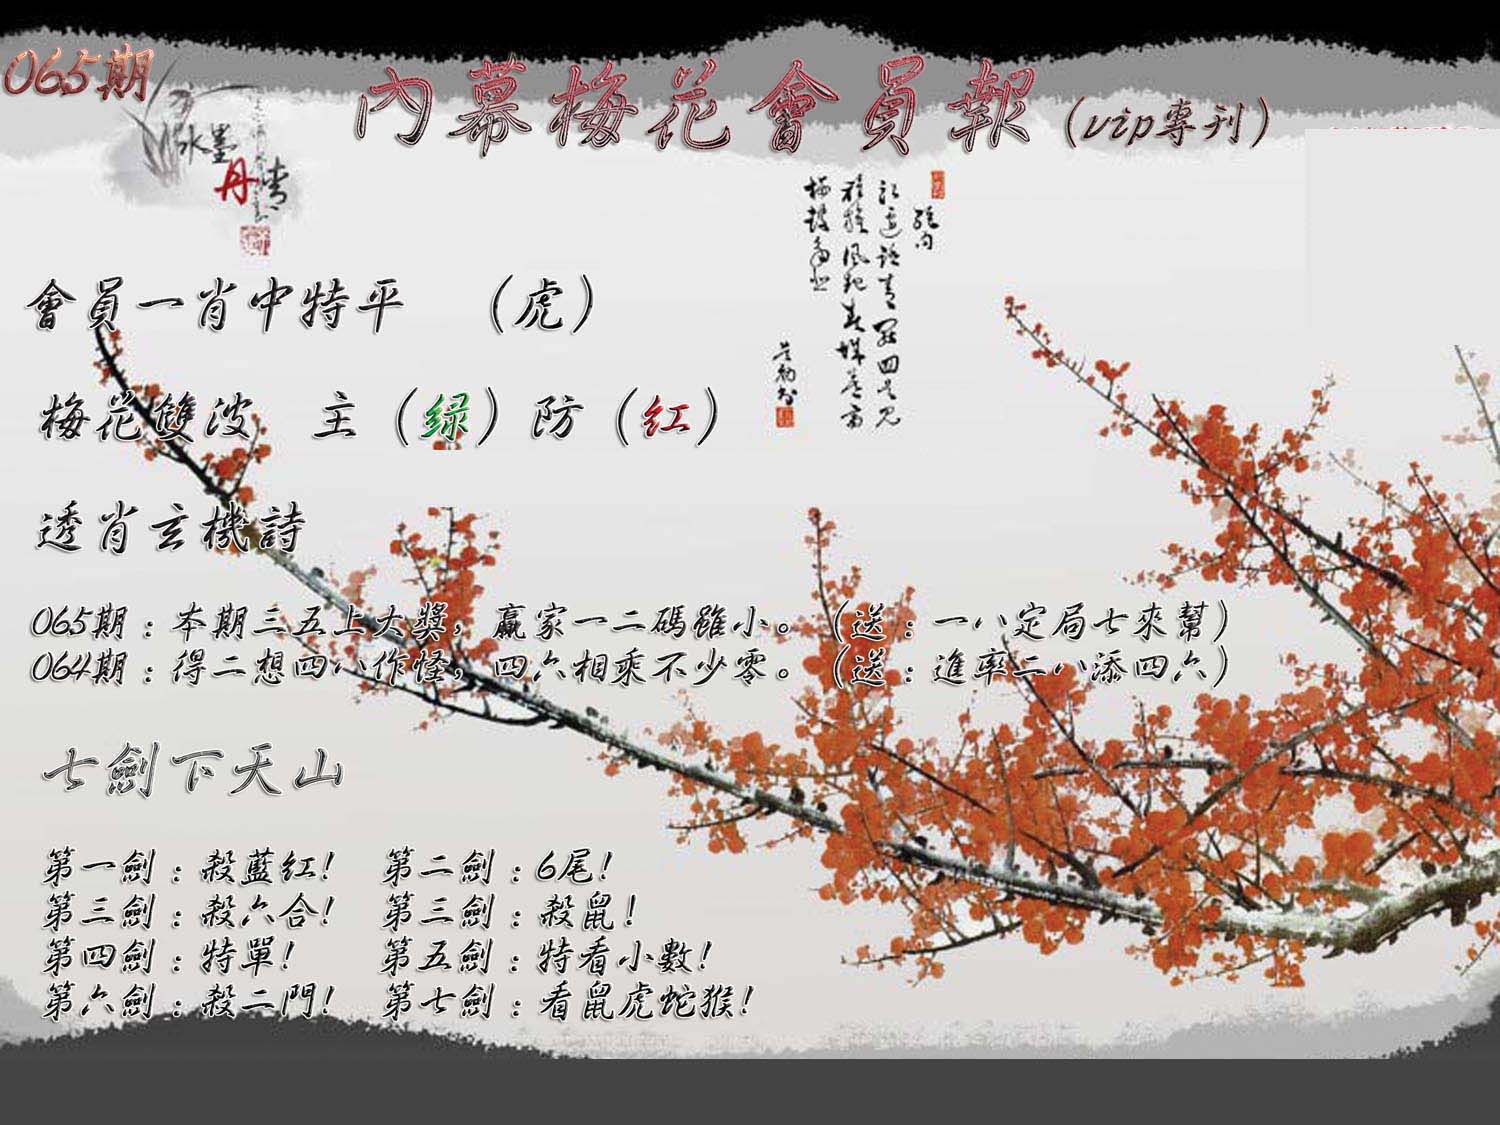 065期
內幕梅花會員報（vip專刊）
水墨
丹青
會員一肖中特平　（虎）
梅花雙波　主（绿）防（红）
透肖玄機詩
065期：本期三五上大獎，贏家一二碼雖小。（送：一八定局七來幫）
064期：得二想四八作怪，四六相乘不少零。（送：進率二八添四六）
七劍下天山
第一劍：殺藍紅！　第二劍：6尾！
第三劍：殺六合！　第三劍：殺鼠！
第四劍：特單！　第五劍：特看小數！
第六劍：殺二門！　第七劍：看鼠虎蛇猴！